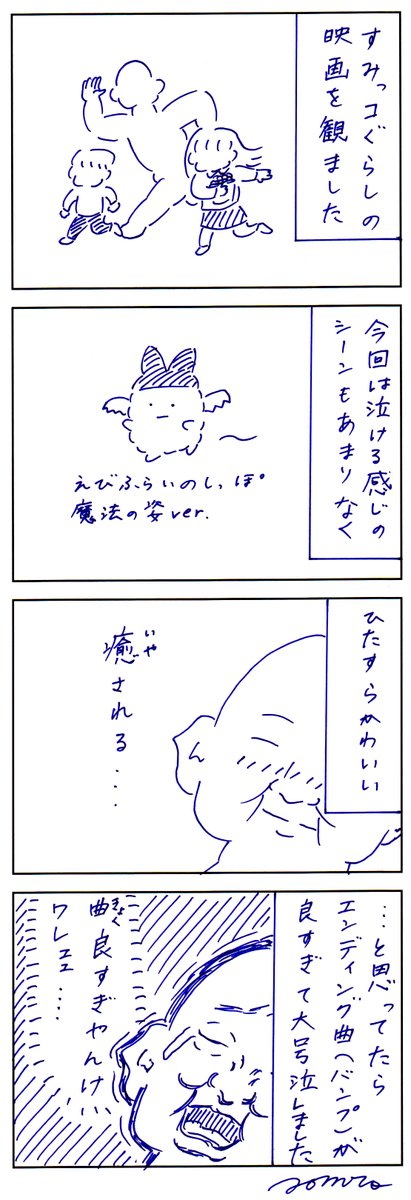 すみっコぐらしの
映画を観ました
今回は泣ける感じの
シーンもあまりなく
えびふらいのしっぽ
魔法の姿ver.
ひたすらかわいい
癒される...
いや
…と思ってたら
エンディング曲(バンプ)が
良すぎて大号泣しました
曲良すぎやんけ、、
きょく
ワレェェ....